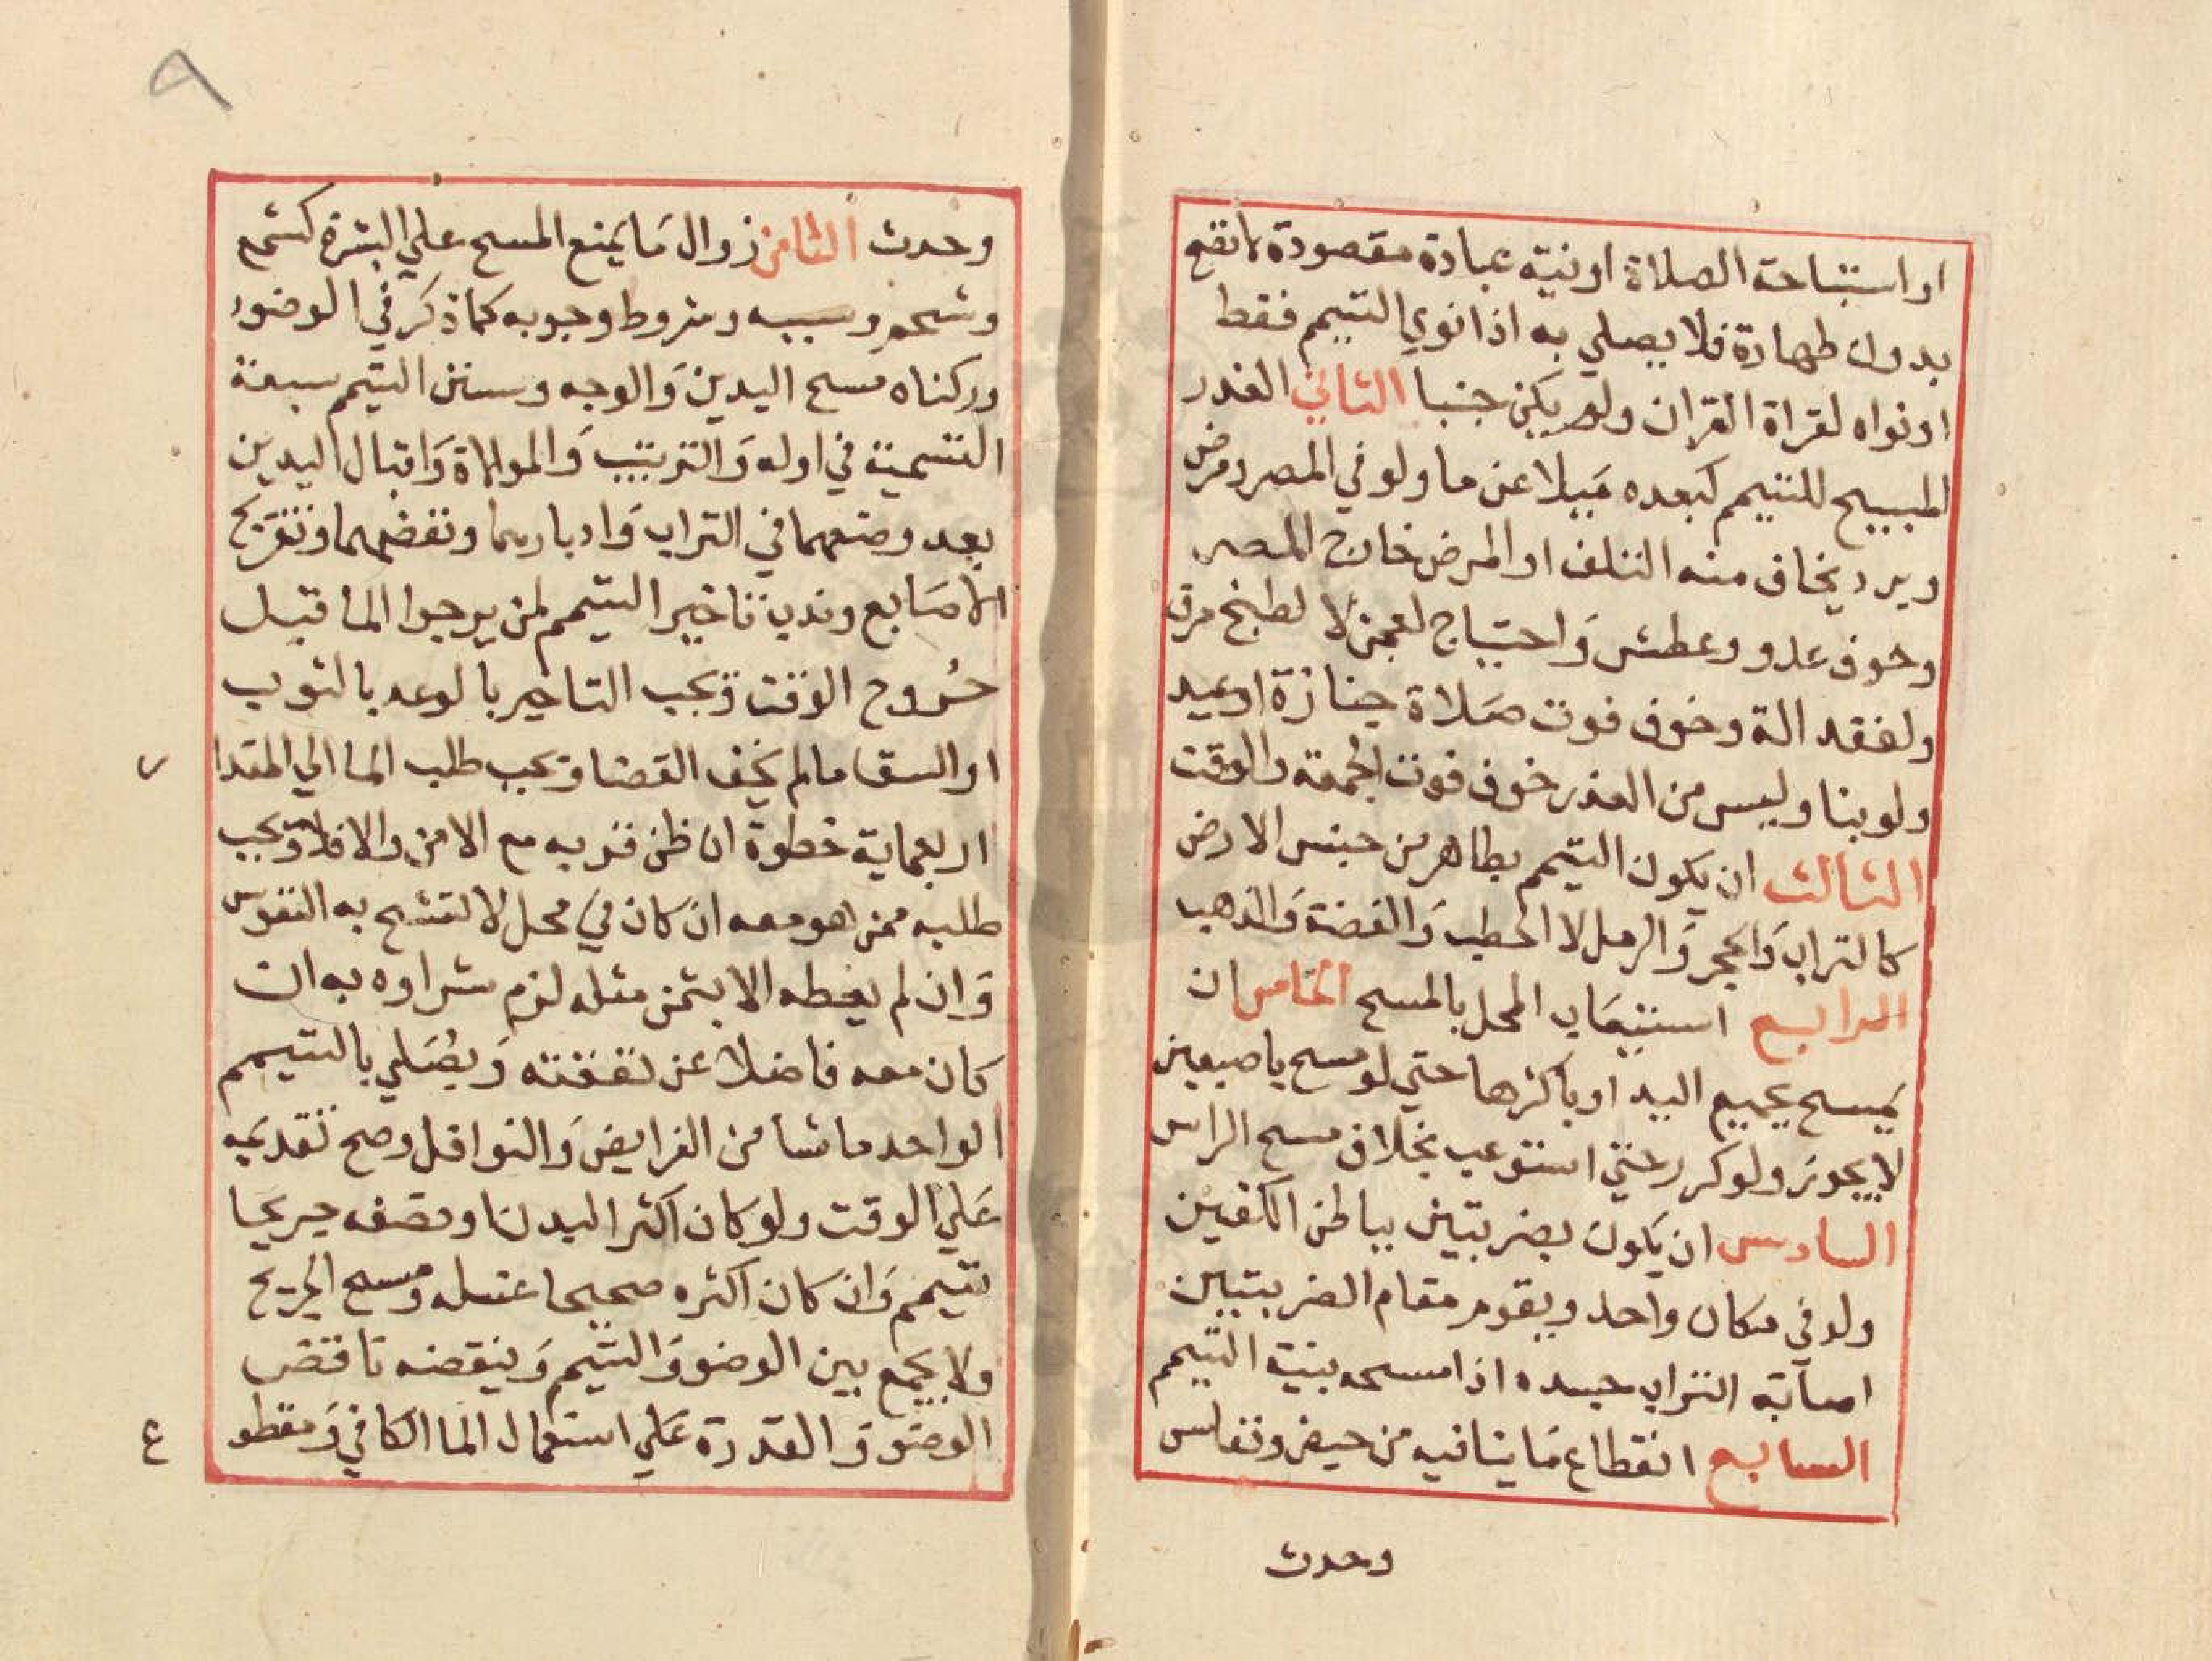 او استباحة الصلاة او نية عبادة مقصودة لا تصح
بدون طهارة فلا يصلي به اذا نوي التيمم فقط
او نواه لقراة القران ولم يكن جنبا الثاني العذر
المبيح للتيمم كبعده ميلا عن ما ولو في المصر ومرض
وبرد يخاف منه التلف او المرض خارج المصر
وخوف عدو وعطش واحتياج لعجن لا لطبخ مرق
ولفقد الة وخوف فوت صلاة جنازة او عيد
ولو بنا وليس من العذر خوف فوت الجمعة والوقت
الثالث ان يكون التيمم بطاهر من جنس الارض
كالتراب والحجر والرمل لا الحطب والفضة والذهب
الرابع استيعاب المحل بالمسح الخامس ان
يمسح بجميع اليد او باكثرها حتي لو مسح باصبعين
لا يجوز ولو كرر حتي استوعب بخلاف مسح الراس
السادس ان يكون بضربتين بباطن الكفين
ولو في مكان واحد ويقوم مقام الضربتين
اصابة التراب جسده اذا مسحه بنية التيمم
السابع انقطاع ما ينافيه من حيض ونفاس
وحدث
٩
وحدث الثامن زوال ما يمنع المسح علي البشرة كشمع
وشحم وسببه وشروط وجوبه كما ذكر في الوضوء
وركناه مسح اليدين والوجه وسنن التيمم سبعة
التسمية في اوله والترتيب والموالاة واقبال اليدين
بعد وضعهما في التراب وادبارهما ونفضهما وتفريج
الاصابع وندب تاخير التيمم لمن يرجوا الما قبل
خروج الوقت ويجب التاخير بالوعد بالثوب
او السقا ما لم يخف القضا ويجب طلب الما الي المقدا
اربعماية خطوة ان ظن قربه مع الامن والا فلا ويجب
طلبه ممن هو معه ان كان في محل لا تشح به النفوس
وان لم يعطه الا بثمن مثله لزم شراوه به ان
كان معه فاضلا عن نفقته ويصلي بالتيمم
الواحد ما شا من الفرايض والنوافل وصح تقديمه
علي الوقت ولو كان اكثر البدن او نصفه جريحا
تيمم وان كان اكثره صحيحا غسله ومسح الجريح
ولا يجمع بين الوضو والتيمم وينقضه ناقض
الوضو والقدرة علي استعمال الما الكافي ومقطو
ر
ع